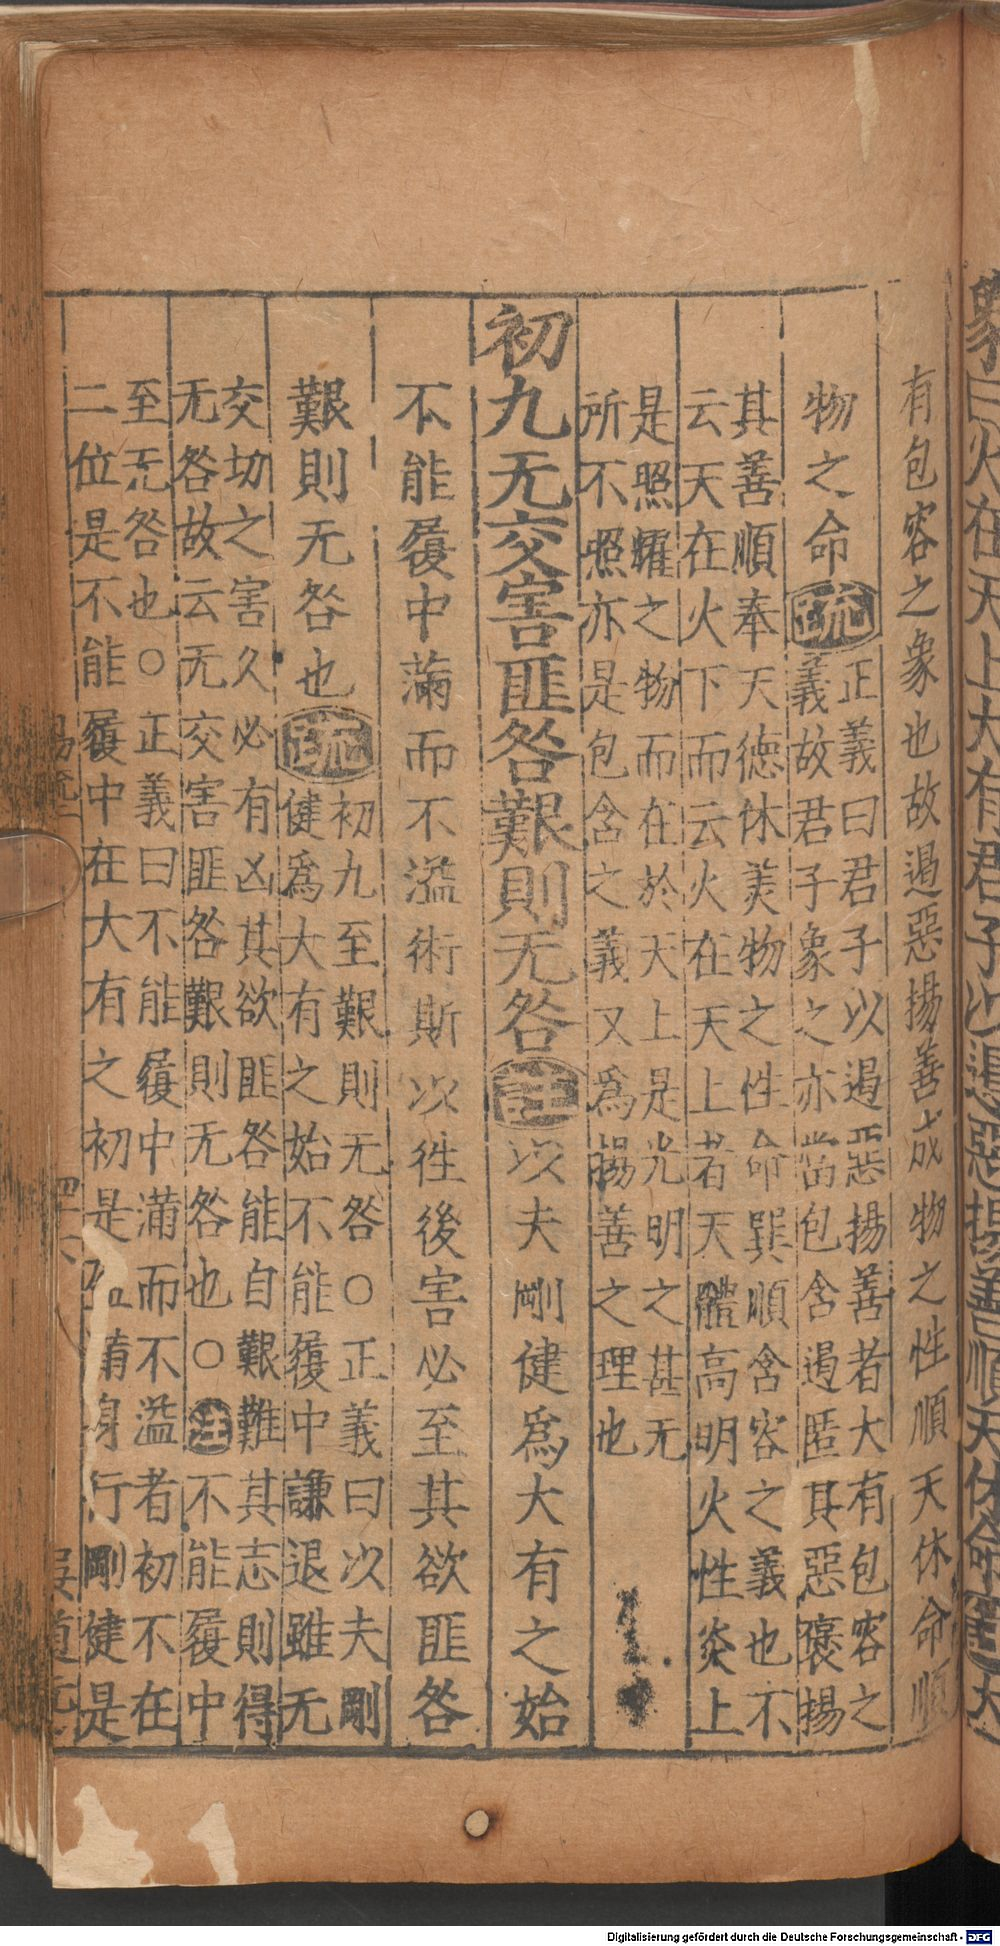 象曰火在天上大有君子以遏惡揚善順天休命註大
有包容之象也故遏惡揚善成物之性順天休命順
物之命疏
正義曰君子以遏惡揚善者大有包容之
義故君子象之亦當包含遏匿其惡褒揚
其善順奉天德休美物之性命巽順含容之義也不
云天在火下而云火在天上者天體高明火性炎上
是照耀之物而在於天上是光明之甚无
所不照亦是包含之義又爲揚善之理也
初九无交害匪咎艱則无咎註以夫剛健爲大有之始
不能履中滿而不溢術斯以徃後害必至其欲匪咎
艱則无咎也疏
初九至艱則无咎○正義曰以夫剛
健爲大有之始不能履中謙退雖无
交切之害久必有凶其欲匪咎能自艱難其志則得
无咎故云无交害匪咎艱則无咎也○註不能履中
至无咎也○正義曰不能履中滿而不溢者初不在
二位是不能履中在大有之初是 身行剛健是
Digitalisierung gefördert durch die Deutsche Forschungsgemeinschaft - DFG